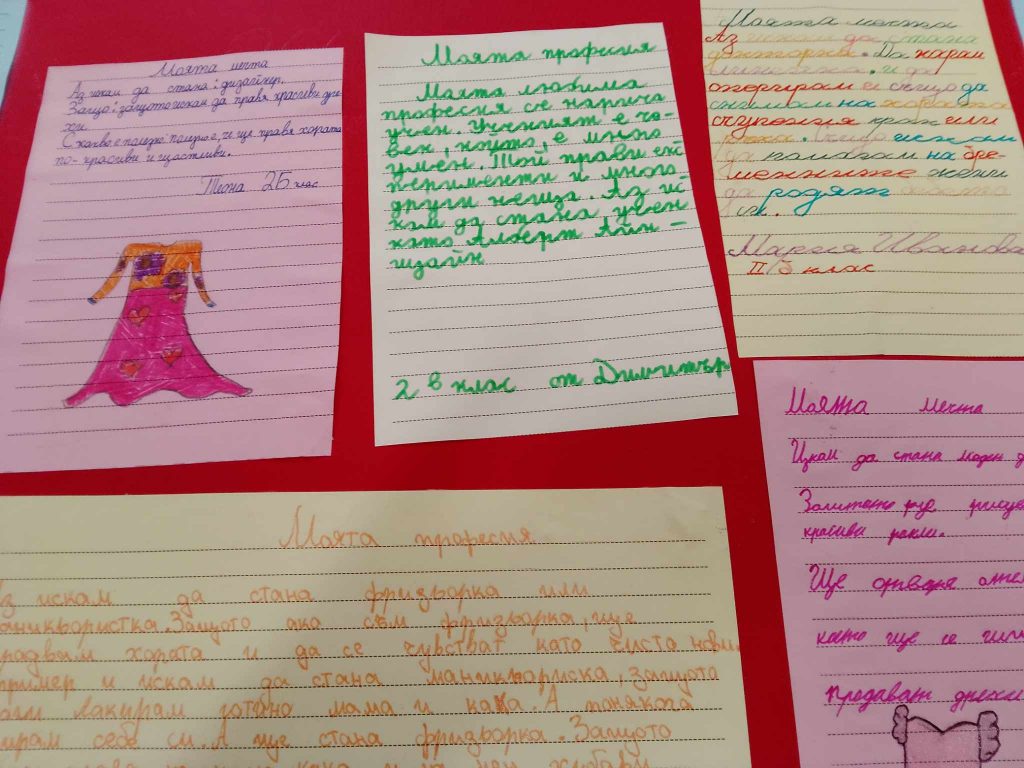 Моята мечта
Аз искам да стана: дизайнер.
Защо: защото искам да правя красиви дре-
хи.
С какво е полезно: полезно е, че ще правя хората
по-красиви и щастливи.
Теона 2Б клас
Моята професия
Моята любима
професия се нарича
учен. Ученият е чо-
век, който, е много
умен. Той прави екс
перименти и много
други не ща. Аз ис-
кам да стана учен
като Алберт Айн-
щайн
2 в клас от Димитър
Моята мечта
Аз искам да стана
докторка. Да карам
линейка. и да
оперирам и също да
снимам на хората
счупения крак или
ръка. Също искам
да помагам на бре-
менните жени
да родят
си.
Мария Иванова
II б клас
Моята мечта
Искам да стана моден
красиви рокли.
Ще отворя
които ще се
продават дрехи
Моята професия
Аз искам да стана фризьорка или
маникюристка. Защото ако съм фризьорка, ще
радвам хората и да се чувстват като чисто нови.
пример и искам да стана маникюриска, защото
лакирам мама и кака. А понякога
себе си. А ще стана фризьорка. Защото